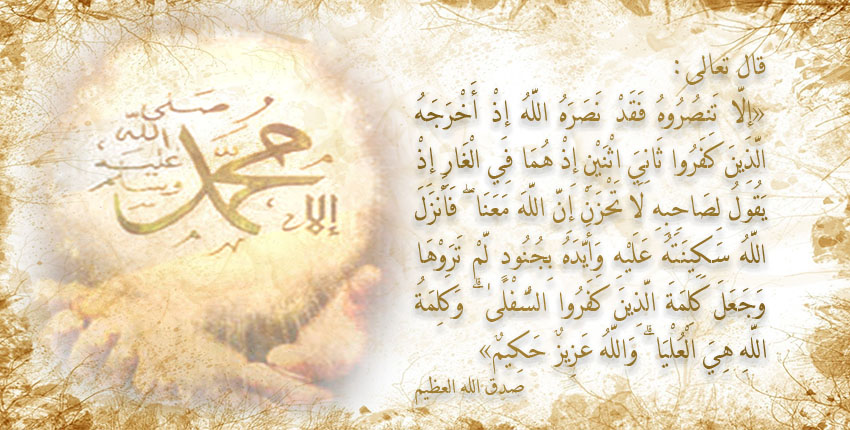 قال تعالى :
«إلّا تَنصُرُوهُ فَقَدْ نَصَرَهُ اللَّهُ إِذْ أَخْرَجَهُ
الَّذِينَ كَفَرُوا ثَانِيَ اثْنَيْنِ إِذْ هُمَا فِي الْغَارِ إِذْ
يَقُولُ لِصَاحِبِهِ لَا تَحْزَنْ إِنَّ اللَّهَ مَعَنَا ۖ فَأَنزَلَ
اللَّهُ سَكِينَتَهُ عَلَيْهِ وَأَيَّدَهُ بِجُنُودٍ لَّمْ تَرَوْهَا
وَجَعَلَ كَلِمَةَ الَّذِينَ كَفَرُوا السُّفْلَىٰ ۗ وَكَلِمَةُ
اللَّهِ هِيَ الْعُلْيَا ۗ وَاللَّهُ عَزِيزٌ حَكِيمٌ»
صدق الله العظيم
إلا
محمد
صلى
الله
عليه
وسلم